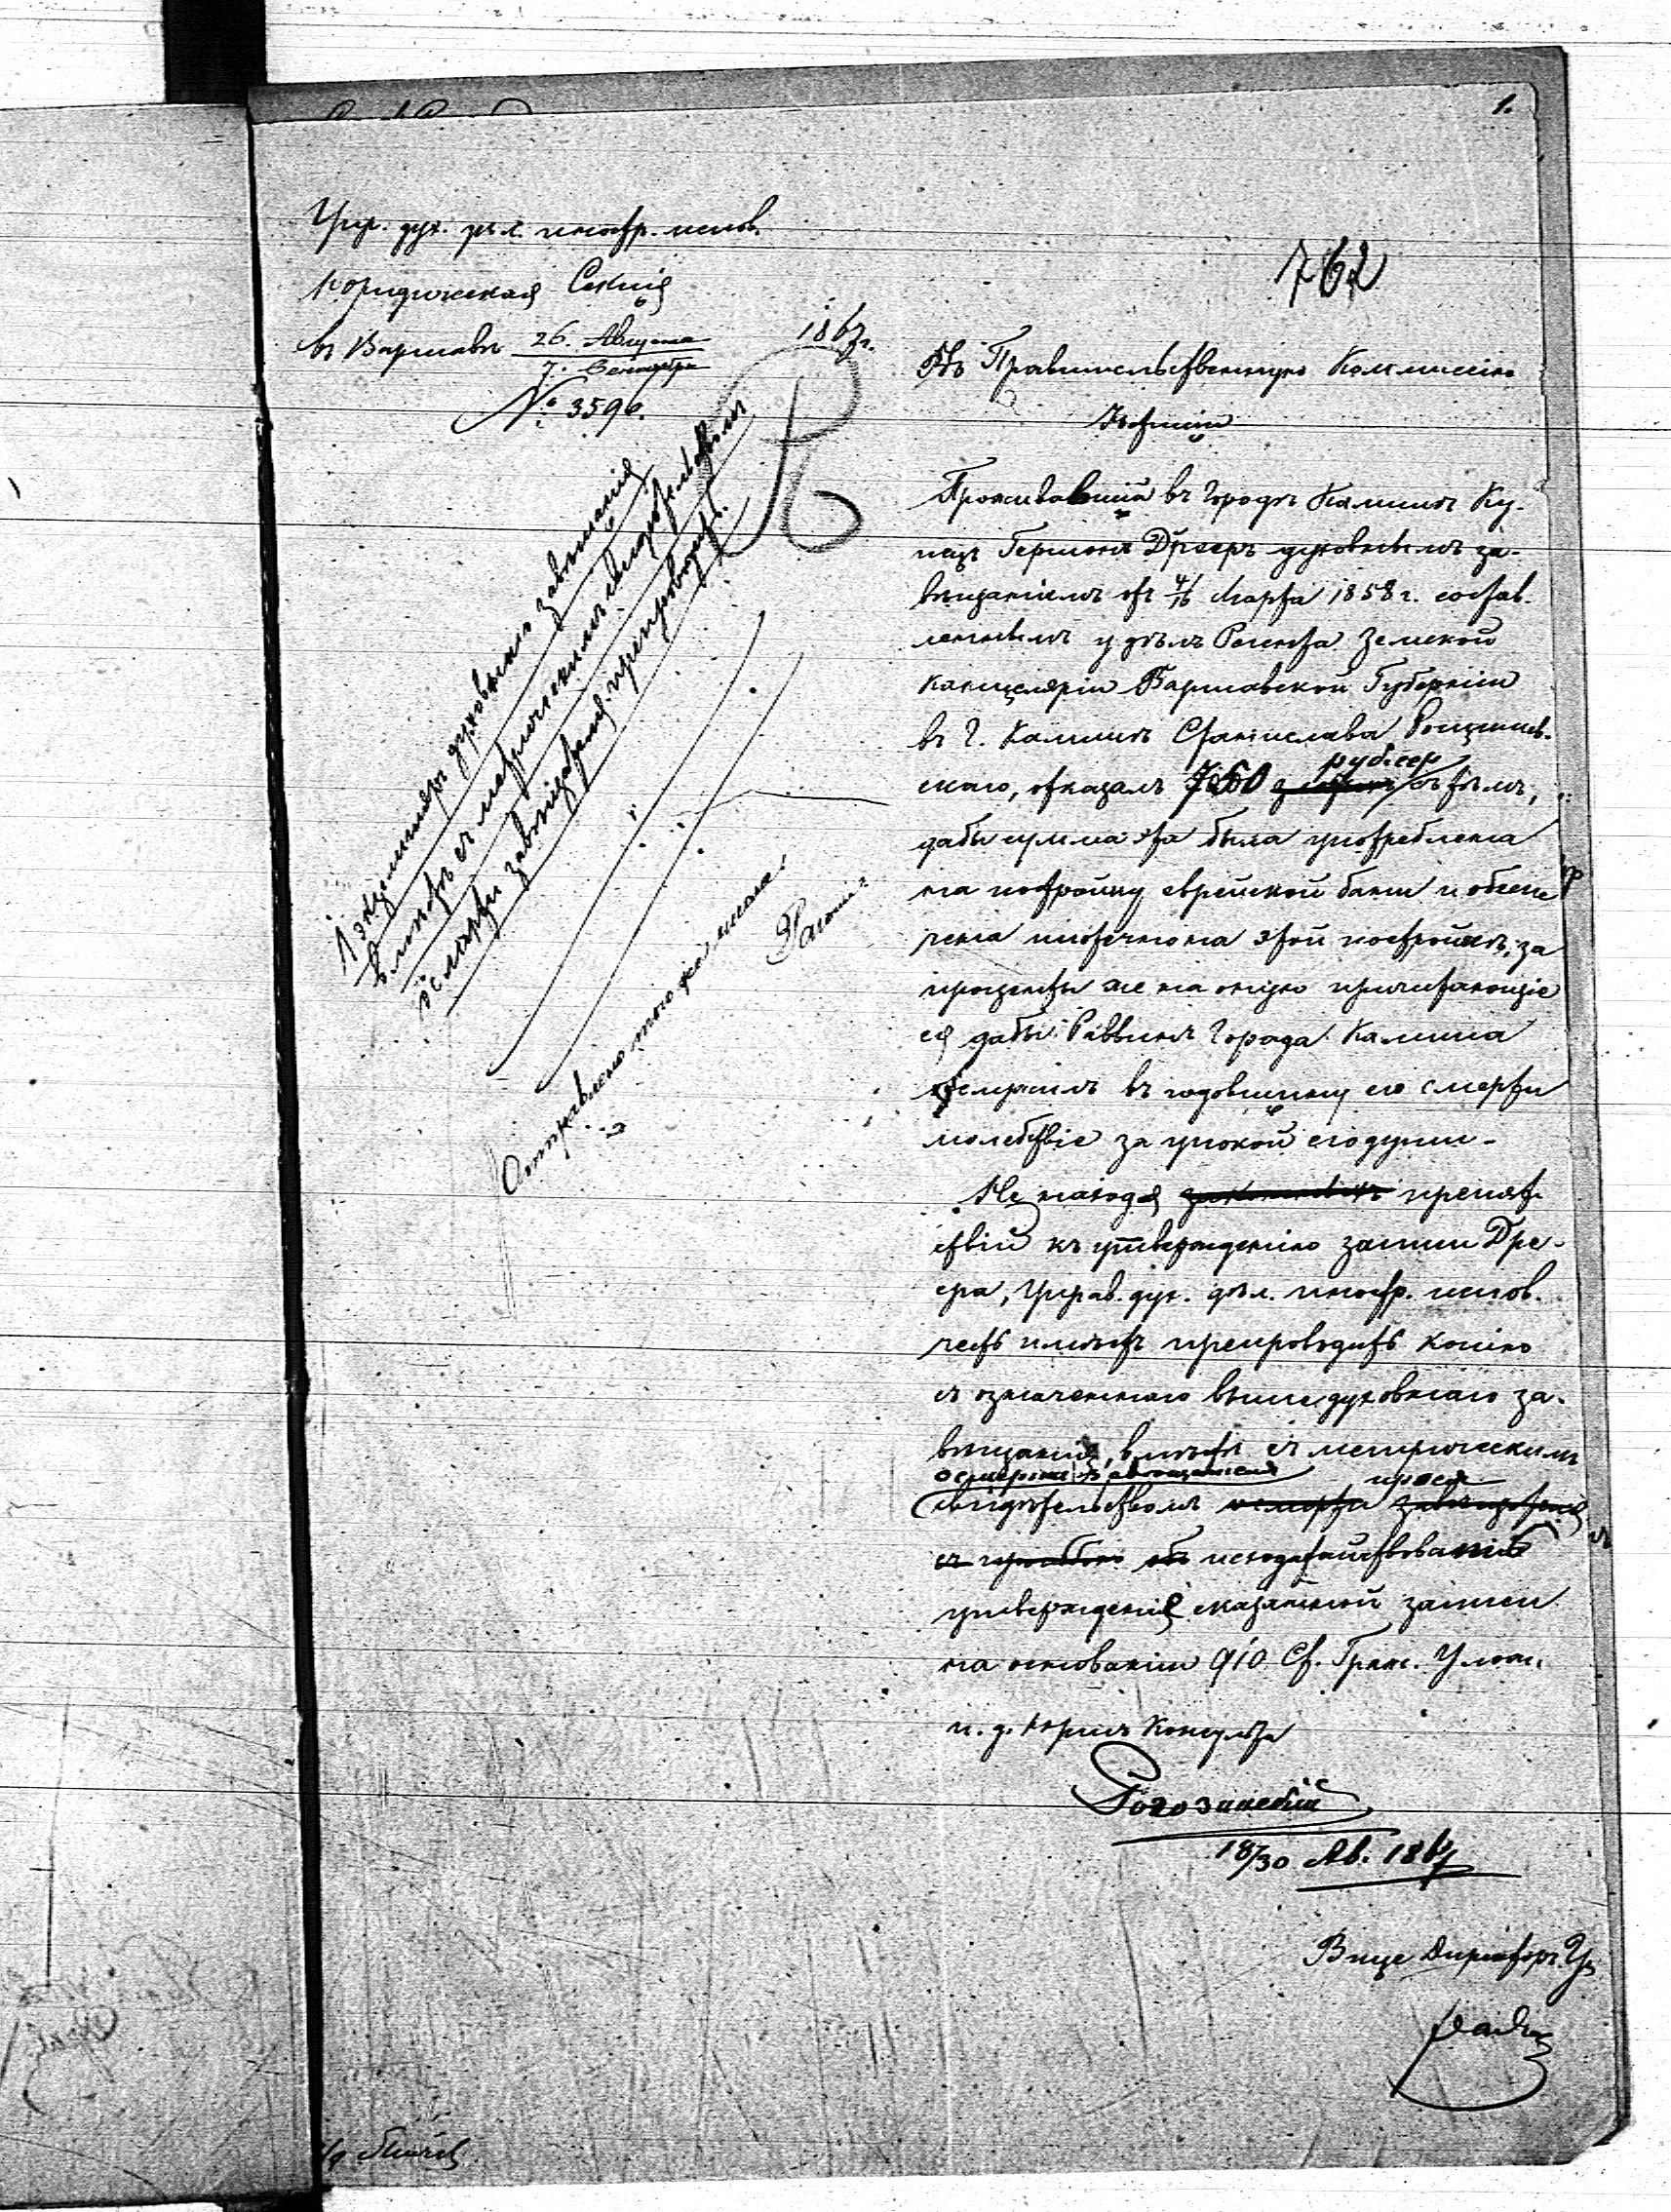 1.
Упр. дух. дѣл. иностр. испов.
Юридическая Секція
въ Варшавѣ 26. Августа 1867 г.
7. Сентября
№ 3596.
762
Въ Правительственную Коммисію
Юстиціи
Проживавшій въ Городѣ Калишѣ Ку-
пецъ Германъ Дрееръ духовнымъ за-
вѣщаніемъ отъ 4/16 Марта 1858 г. состав-
леннымъ у дѣлъ Регента Земской
Канцеляріи Варшавской Губерніи
въ Г. Калишѣ Станислава
скаго, отказалъ 750 руб. сер. съ тѣмъ,
дабы сумма эта была употреблена
на постройку еврейской бани и обезпе
чена ипотечно на этой постройкѣ, за
проценты же на оную причитающіе
ся дабы Раввинъ Города Калиша
въ годовщину его смерти
молебствіе за упокой его души.
Не находя законныхъ препят-
ствій къ утвержденію записи Дре-
ера, Управ. дух. дѣл. иностр. испов.
честь имѣетъ препроводить копію
съ означеннаго выше духовнаго за-
вѣщанія, вмѣстѣ съ метрическимъ
о смерти завѣщателя прося
свидѣтельствомъ о смерти завѣщателя
съ просьбою объ исходатайствованіи
утвержденія сказанной записи
на основаніи 910 Ст. Гражд. Улож.
и. д. Юрисъ Консульта
18/30 Ав. 1867
Вице Директоръ У.
1 экземпляръ духовнаго завѣщанія
вмѣстѣ съ метрическимъ свидѣтельствомъ
о смерти завѣщателя препровождъ.
Отправлено того же числа.